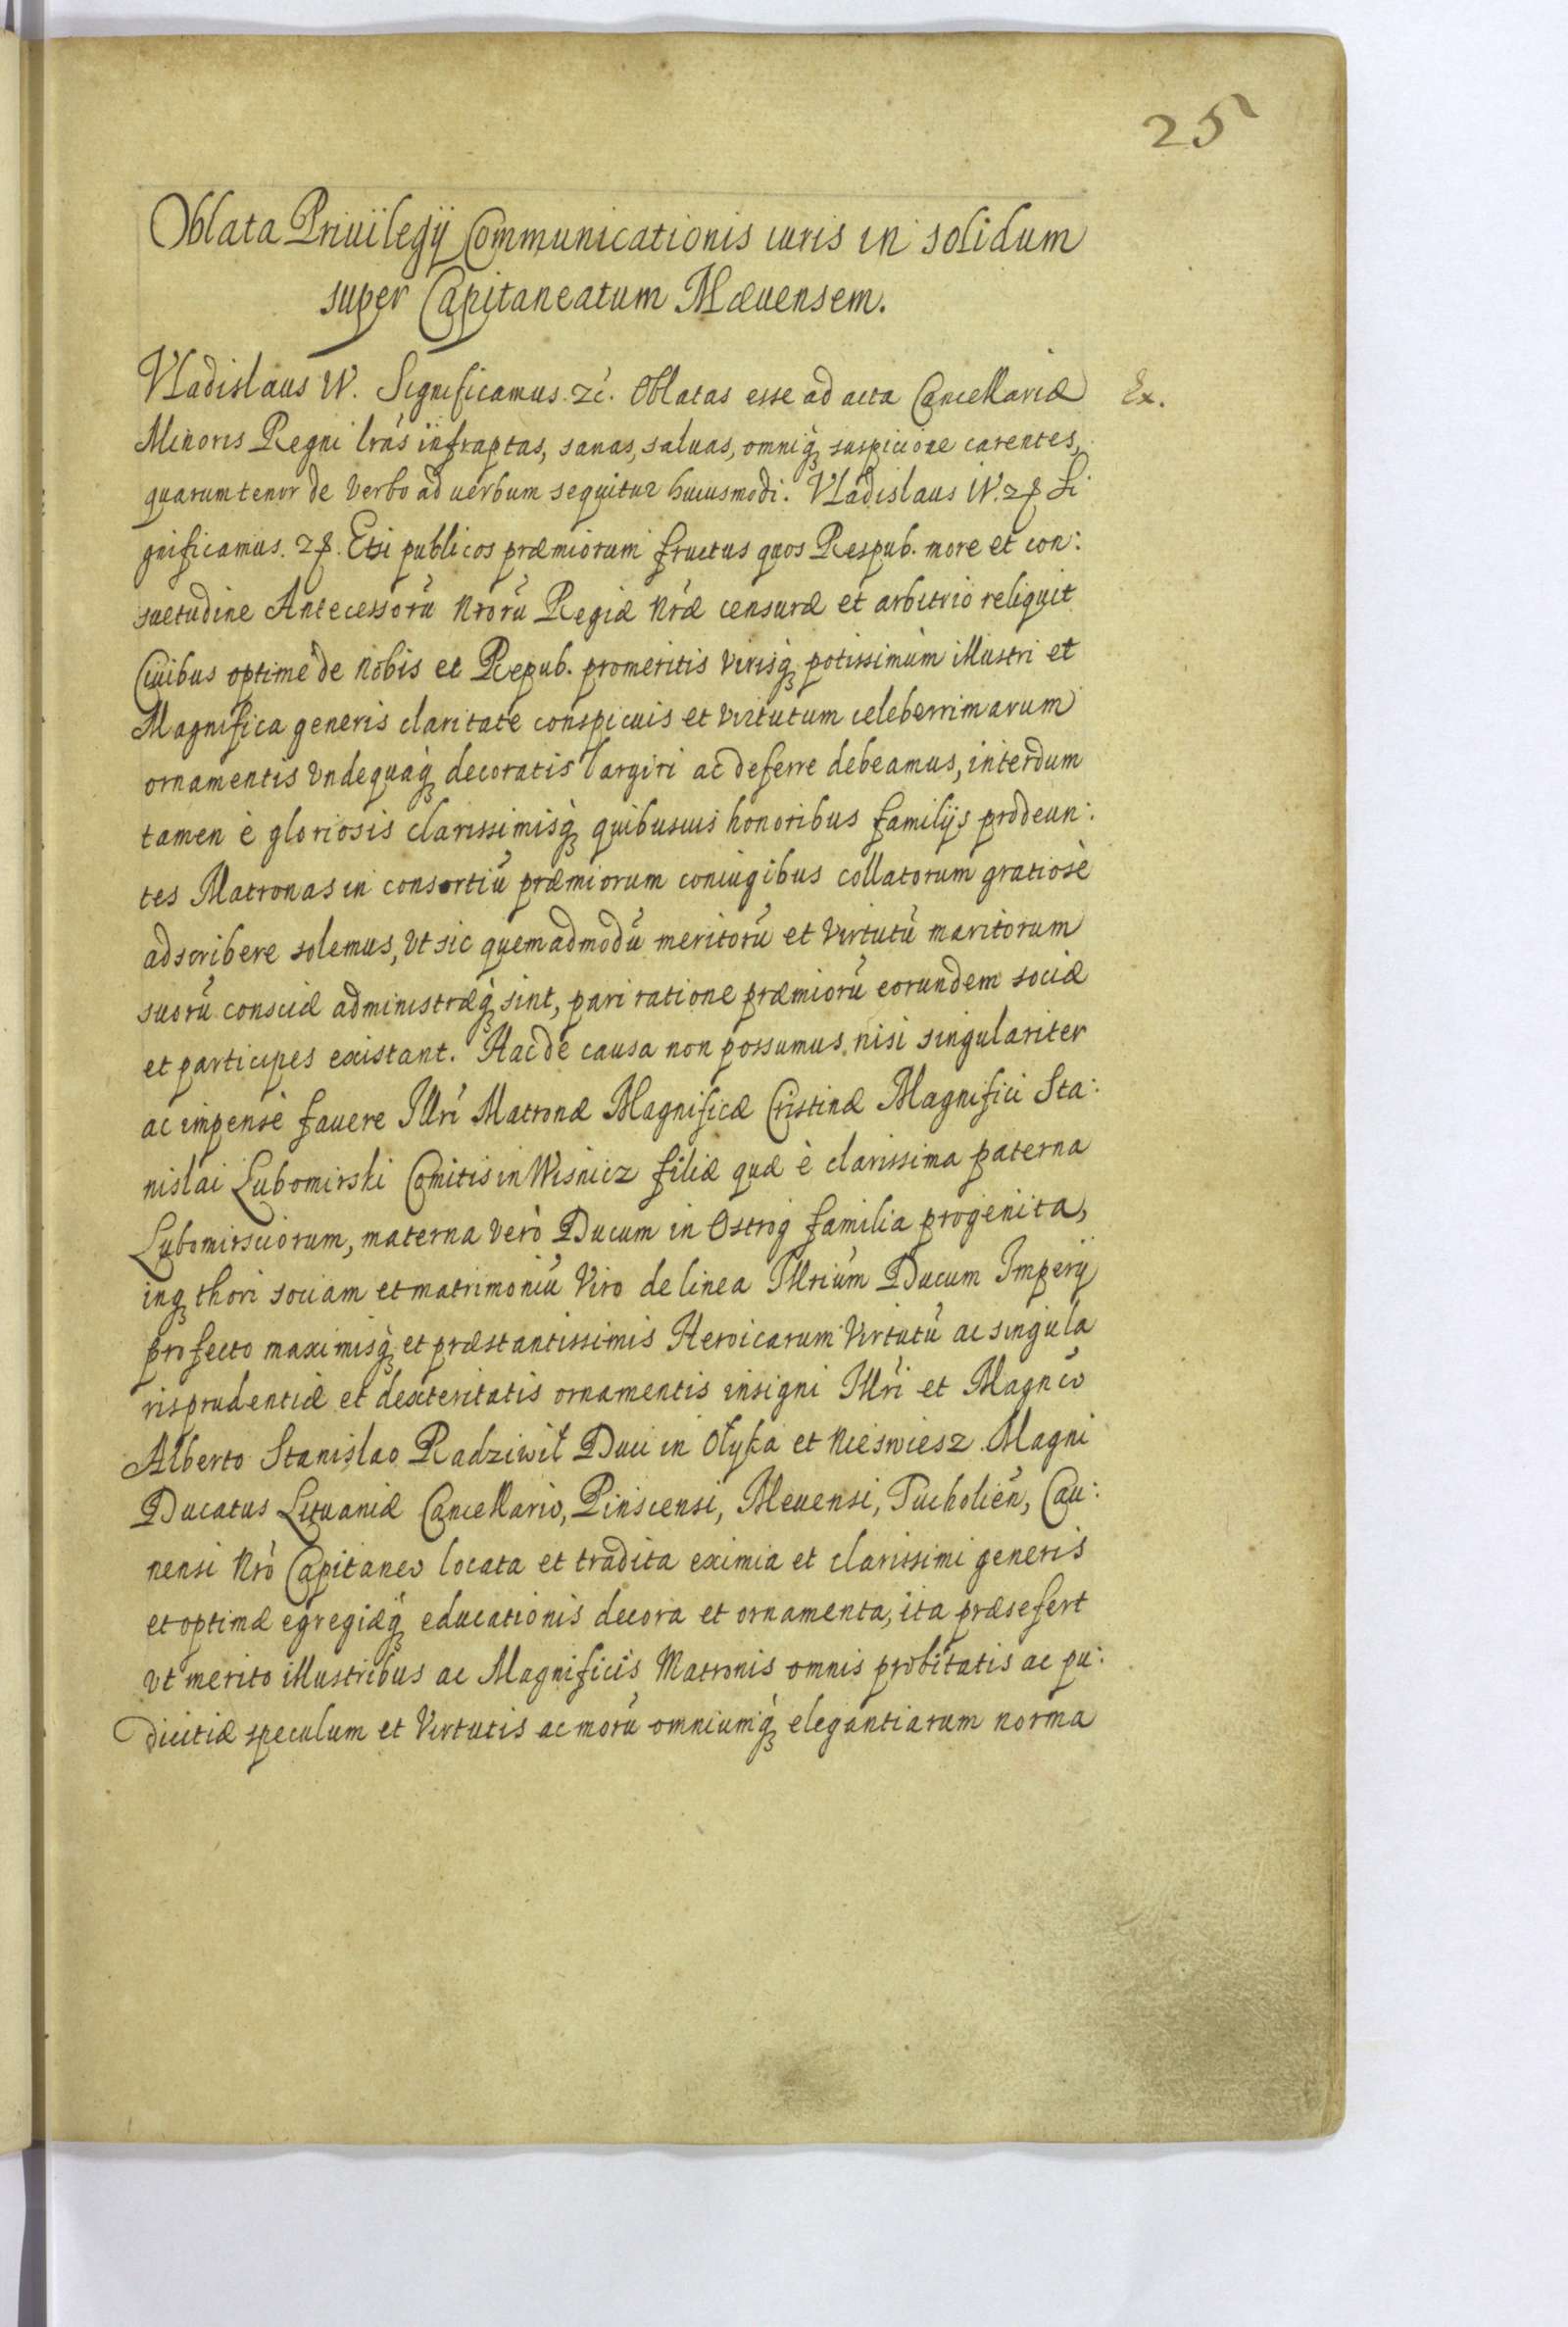 25
Oblata Priuilegij Communicationis iuris in solidum
super Capitaneatum Mæuensem.
Vladislaus IV. Significamus. &c̃. Oblatas esse ad acta Cancellariæ Ex.
Minoris Regni lrás infraptas, sanas, saluas, omniq́ꝫ suspicione carentes,
quarum tenor de verbo ad uerbum sequitur huiusmodi. Vladislaus IV. &c. Si
gnificamus. &c. Etsi publicos præmiorum fructus quos Respub. more et con:
suetudine Antecessorũ Nrorũ Regiæ Nrǽ censuræ et arbitrio reliquit
Ciuibus optimè de Nobis et Repub. promeritis virisq́ꝫ potissimùm illustri et
Magnifica generis claritate conspicuis et virtutum celeberrimarum
ornamentis vndequaq́ꝫ decoratis largiri ac deferre debeamus, interdum
tamen è gloriosis clarissimisq́ꝫ quibusuis honoribus familijs prodeun:
tes Matronas in consortiũ præmiorum coniugibus collatorum gratiosè
adscribere solemus, vt sic quemadmodũ meritorũ et virtutũ maritorum
suorũ consciæ administræq́ꝫ sint, pari ratione præmiorũ eorundem sociæ
et participes existant. Hac de causa non possumus nisi singulariter
ac impensè fauere Illrí Matronæ Magnificæ Cristinæ Magnifici Sta:
nislai Lubomirski Comitis in Wisnicz filiæ quæ è clarissima paterna
Lubomirsciorum, materna verò Ducum in Ostrog familia progenita,
inqꝫ thori sociam et matrimoniũ Viro de linea Illriúm Ducum Imperij
profecto maximisq́ꝫ et præstantissimis Heroicarum Virtutũ ac singula
ris prudentiæ et dexteritatis ornamentis insigni Illrí et Magnćo
Alberto Stanislao Radziwił Duci in Ołyka et Nieswiesz Magni
Ducatus Lituaniæ Cancellario, Pinscensi, Meuensi, Tucholień, Cau:
nensi Nrò Capitaneo locata et tradita eximia et clarissimi generis
et optimæ egregiæq́ꝫ educationis decora et ornamenta, ita præsefert
vt merito illustribus ac Magnificis Matronis omnis probitatis ac pu:
dicitiæ speculum et Virtutis ac morũ omniumq́ꝫ elegantiarum norma